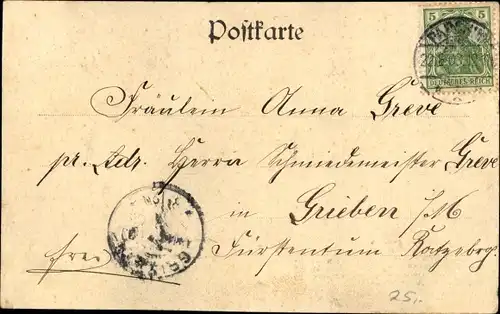 Postkarte
5 5
DEUTSCHES REICH
Fräulein Anna Greve
pr. Adr. Herrn Schmiedemeister Greve
in Grieben i/M
frei Fürstentum Ratzebrg.
25.-